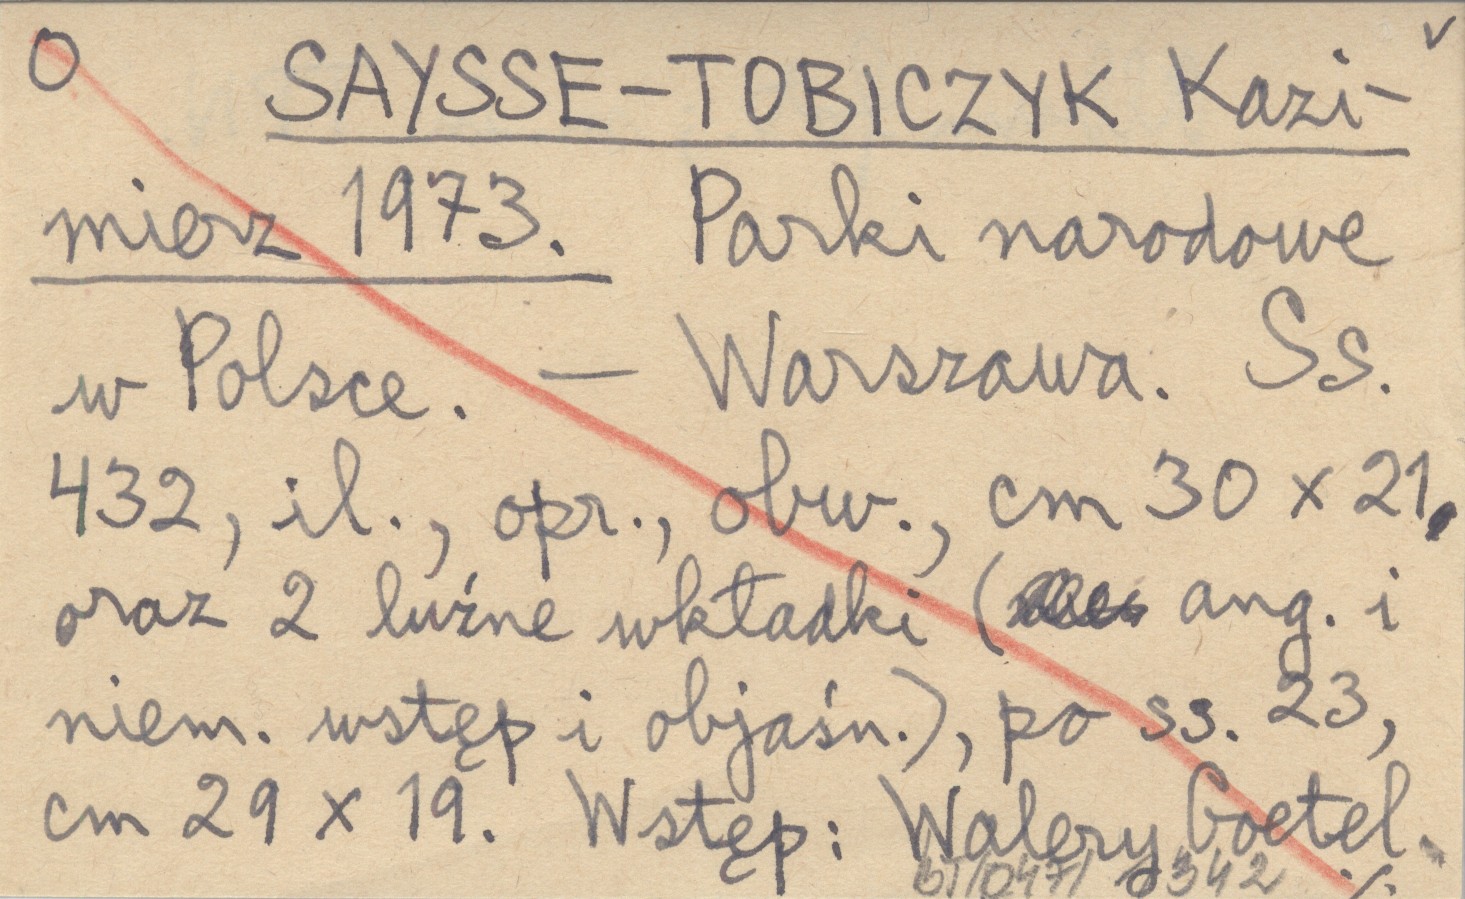 O SAYSSE-TOBICZYK Kazi- v
mierz 1973. Parki narodowe
w Polsce. — Warszawa. Ss.
432, il., opr., obw., cm 30 x 21,
oraz 2 luźne wkładki ( ang. i
niem. wstęp i objaśn.), po ss. 23,
cm 29 x 19. Wstęp: Walery Goetel.
342 ./.